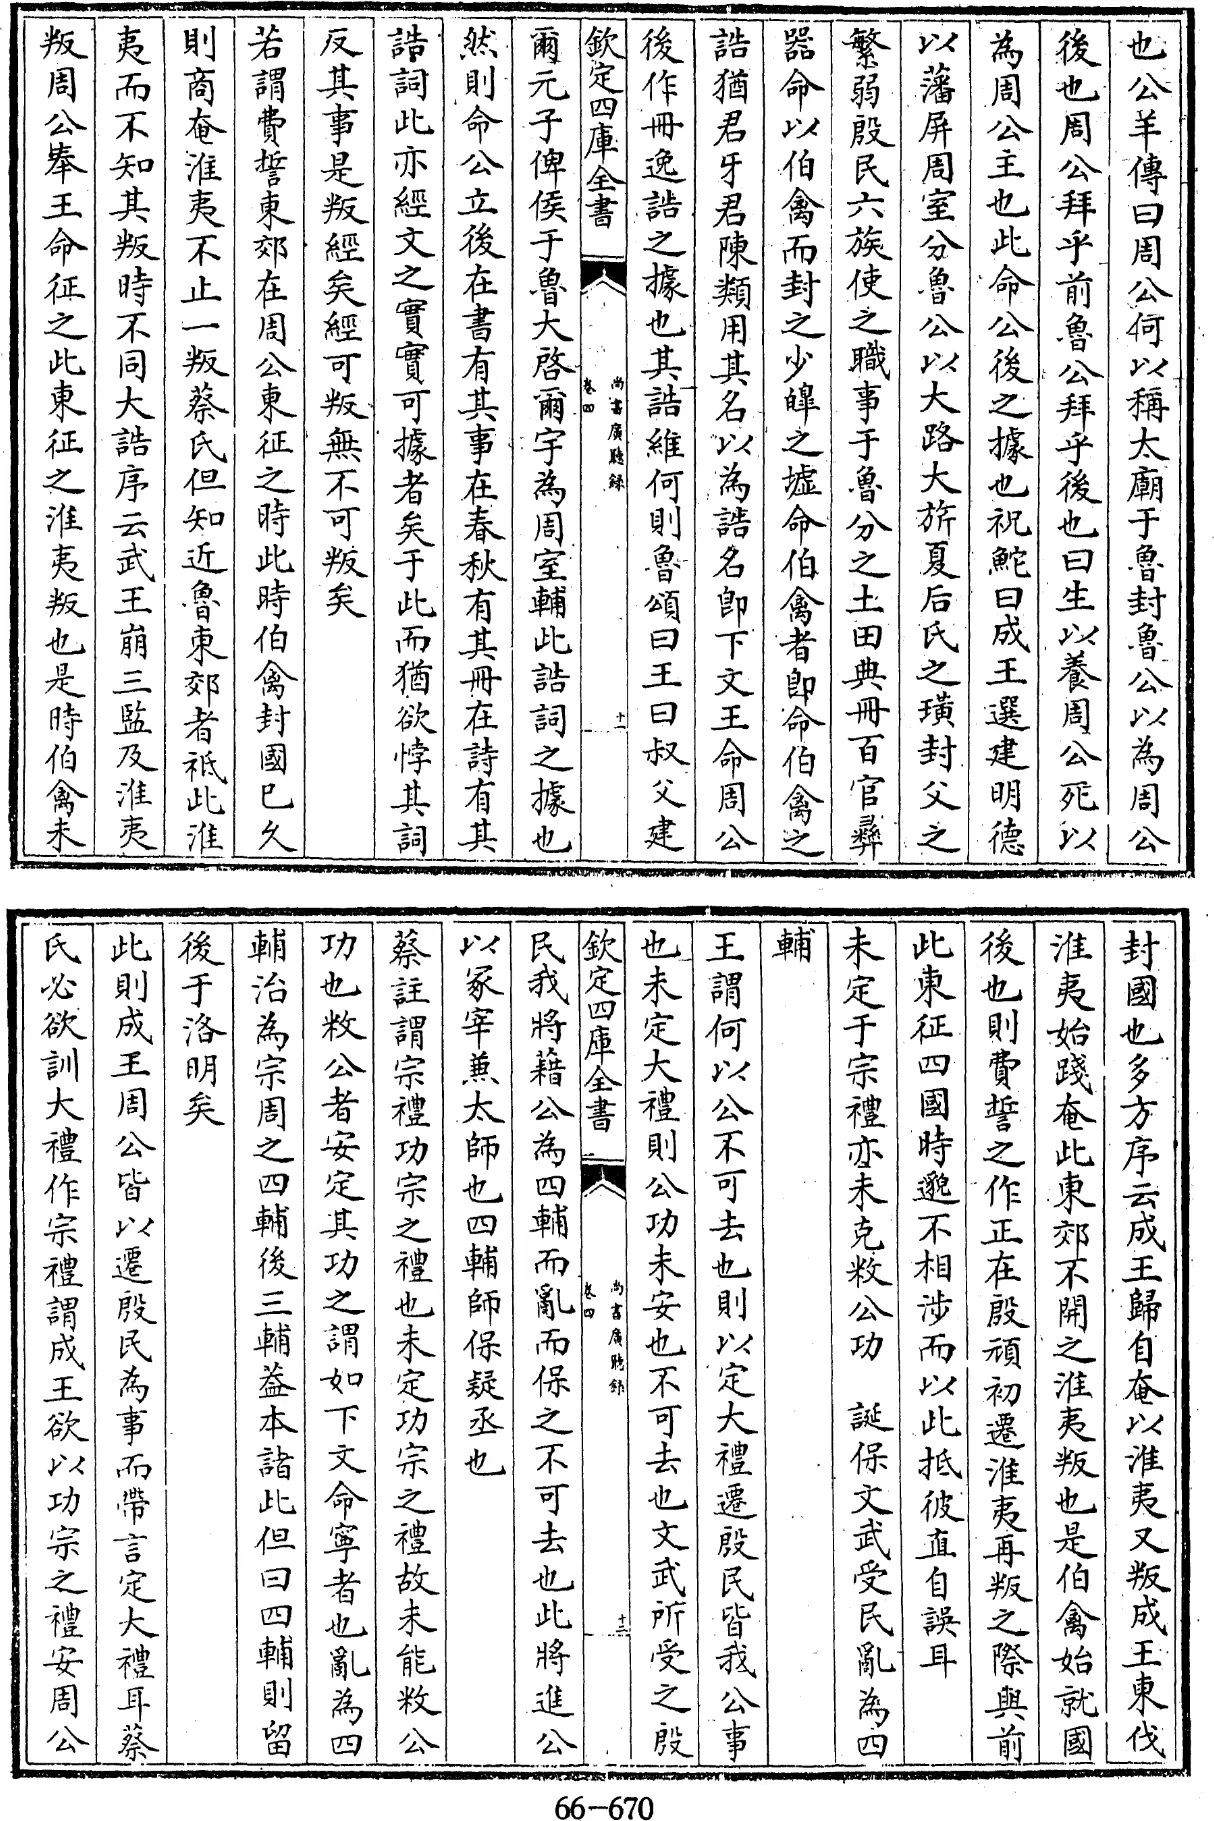 也公羊傳曰周公何以稱太廟于魯封魯公以為周公
後也周公拜乎前魯公拜乎後也曰生以養周公死以
為周公主也此命公後之據也祝鮀曰成王選建明德
以藩屏周室分魯公以大路大旂夏后氏之璜封父之
繁弱殷民六族使之職事于魯分之土田典冊百官彝
器命以伯禽而封之少皥之墟命伯禽者即命伯禽之
誥猶君牙君陳類用其名以為誥名即下文王命周公
後作冊逸誥之據也其誥維何則魯頌曰王曰叔父建
欽定四庫全書
尚書廣聽錄
卷四
十二
爾元子俾侯于魯大啓爾宇為周室輔此誥詞之據也
然則命公立後在書有其事在春秋有其冊在詩有其
誥詞此亦經文之實實可據者矣于此而猶欲悖其詞
反其事是叛經矣經可叛無不可叛矣
若謂費誓東郊在周公東征之時此時伯禽封國已久
則商奄淮夷不止一叛蔡氏但知近魯東郊者祗此淮
夷而不知其叛時不同大誥序云武王崩三監及淮夷
叛周公奉王命征之此東征之淮夷叛也是時伯禽未
封國也多方序云成王歸自奄以淮夷又叛成王東伐
淮夷始踐奄此東郊不開之淮夷叛也是伯禽始就國
後也則費誓之作正在殷頑初遷淮夷再叛之際與前
此東征四國時邈不相涉而以此抵彼直自誤耳
未定于宗禮亦未克敉公功　誕保文武受民亂為四
輔
王謂何以公不可去也則以定大禮遷殷民皆我公事
也未定大禮則公功未安也不可去也文武所受之殷
欽定四庫全書
尚書廣聽錄
卷四
十三
民我將藉公為四輔而亂而保之不可去也此將進公
以冢宰兼太師也四輔師保疑丞也
蔡註謂宗禮功宗之禮也未定功宗之禮故未能敉公
功也敉公者安定其功之謂如下文命寧者也亂為四
輔治為宗周之四輔後三輔蓋本諸此但曰四輔則留
後于洛明矣
此則成王周公皆以遷殷民為事而帶言定大禮耳蔡
氏必欲訓大禮作宗禮謂成王欲以功宗之禮安周公
66-670